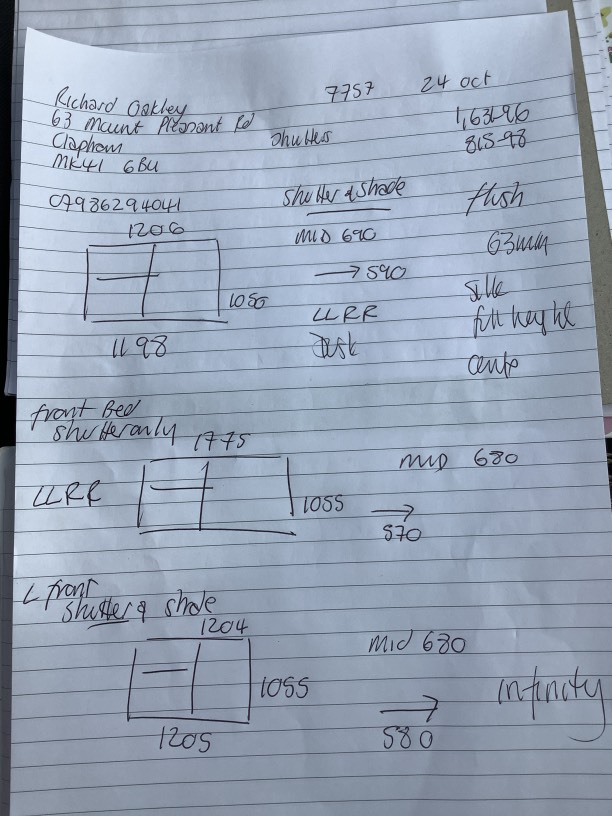 7757 24 oct
Richard Oakley
63 Mount Pleasant Rd
Clapham
MK41 6BU
Shutters
1,631-96
815-98
07986294041
Shutter & Shade
flush
1206
1050
1198
MID 690
63mm
→ 590
Silk
LLRR
full height
Desk
centre
front Bed
shutter only
1775
LLRR
1055
MID 680
→
570
L front
shutter & shade
1204
1055
1205
Mid 680
→
580
infinity